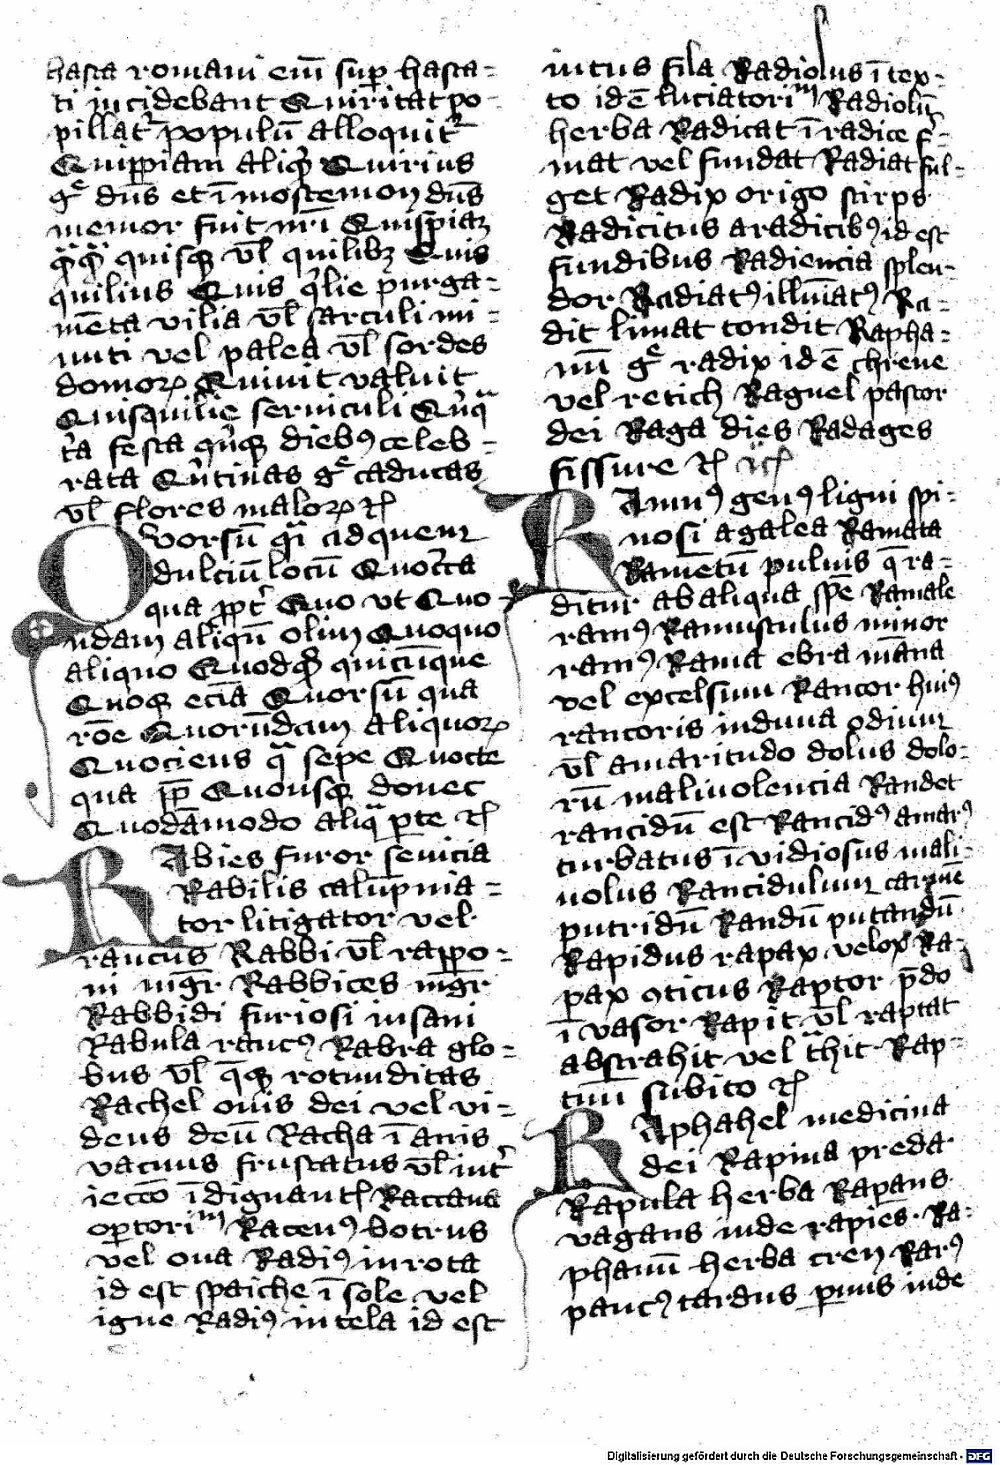 hasta romani em̄ sup̱ hasta=
ti incidebant Quiritat po-
pillat᷑ populū alloquit᷑
Quippiam aliqͥd Quirius
gͤ dn̄s et ī mostemon dn̄s
memor fuit nr̄i Quispiaꝫ
quisqꝫ vl̄ quilibꝫ Quis
quilius Quis qͥlie purga=
mēta vilia vl̄ sarculi mi=
nuti vel palea vl̄ sordes
domoꝝ Quiuit valuit
Quisquilie seruiculi
festa diebꝰ celeb-
rata gͤ caducas
vl̄ flores maloꝝ ⁊c̄
Quorsū qͣi ad quem
dulciū locū Quocͥca
qua ꝓpt᷑ Quo vt Quo-
ndam aliqn̄ olim Quoquo
aliquo quicūque
Quoqꝫ eciā Quorsū qua
rōe Quorūdam aliquoꝝ
Quociens qͣ sepe Quocte
qua Quousqꝫ donec
Quodāmodo aliqͣ ꝑte ⁊c̄
Rabies furor seuicia
Rabilis calūpnia=
tor litigator vel
raucus Rabbi vl̄ rappo-
ni mgr̄ Rabbices mgr̄
Rabbidi furiosi insani
Rabula raucꝰ Rabra glo=
bus vl̄ rotunditas
Rachel ouis dei vel vi=
dens deū Racha īanis
vacuus frustatus vl̄ int᷑
iectō īdignant̄ Raccana
oꝑtoriᵐ Racenꝰ botrus
vel oua Radiꝰ in rota
id est spaiche ī sole vel
igne Radiꝰ in tela id est
intus fila Radiolus ī tex-
to id ē luciatoriᵐ Radiolū
herba Radicat ī radice fͥ-
mat vel fundat Radiat ful=
get Radix origo stirps
Radicitus aradicibꝰ id est
fundibus Radiencia splen-
dor Radiatꝰ illūatꝰ Ra=
dit limat tondit Rapha=
nū gͤ radix id ē chrene
vel retich Raguel pastor
dei Raga dies Radages
fissure ⁊c̄ ⁊c̄
Ramnꝰ genꝰ ligni spi=
nosi a galea Ramata
Ramētū puluis q̄ ra=
ditur ab aliqua spē Ramale
ramꝰ Ramusculus minor
ramꝰ Rama ebra māna
vel excelsum Rancor huiꝰ
rancoris induua odium
vl̄ amaritudo dolus dolo=
rū maliuolencia Randet
rancidū est Rancidꝰ amarꝰ
turbatus īvidiosus mali=
uolus Rancidulum carnē
putridū Randū putandū
Rapidus rapax velox Ra=
pax ꝯticus Raptor p̄do
īvasor Rapit vl̄ raptat
abstrahit vel tͣhit Rap=
tim subito ⁊c̄
Raphahel medicina
dei Rapina preda
Rapula herba Rapans
vagans inde rapies Ra=
phanū herba cren Rarꝰ
paucꝰ tardus ꝑuus inde
Digitalisierung gefördert durch die Deutsche Forschungsgemeinschaft - DFG